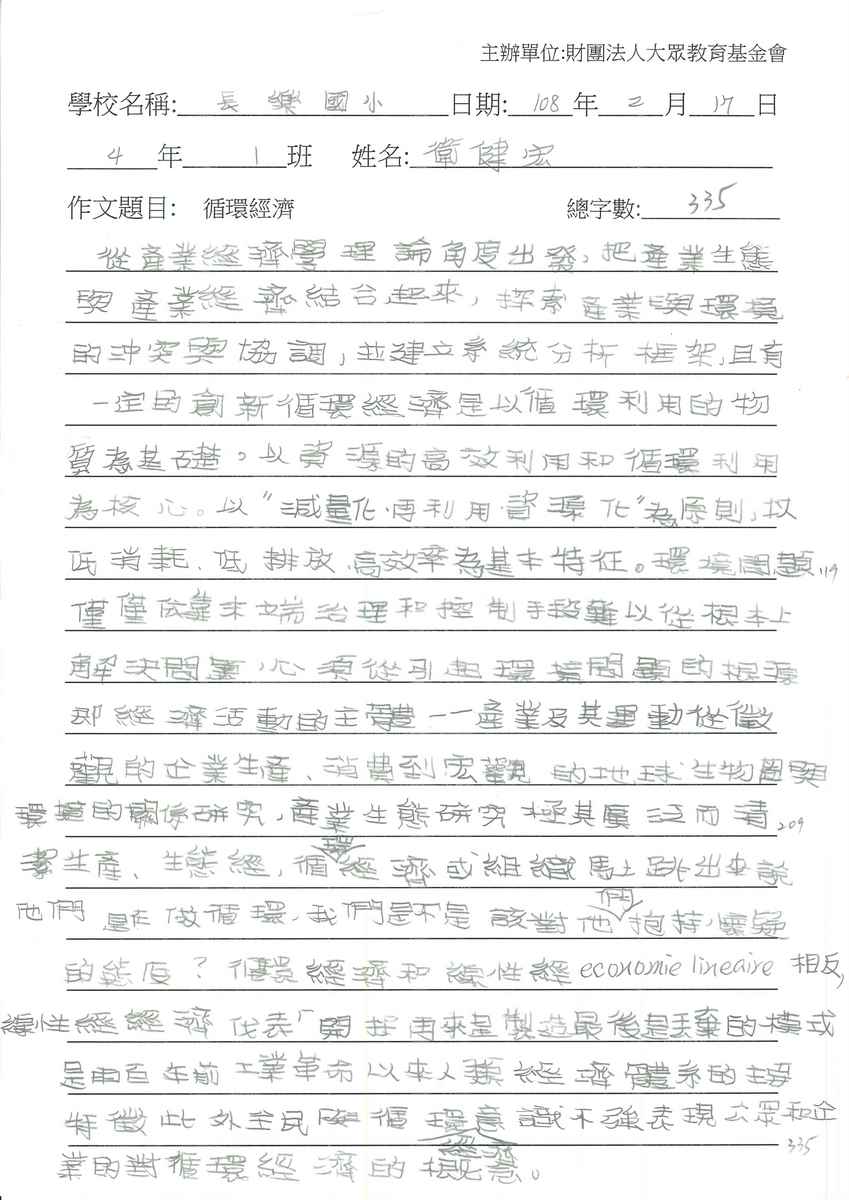 主辦單位:財團法人大眾教育基金會
學校名稱: 長樂國小 日期: 108 年 2 月 17 日
4 年 1 班 姓名: 衛健宏
作文題目: 循環經濟 總字數: 335
從產業經濟學理論角度出發,把產業生態
與產業經濟結合起來,探索產業與環境
的沖突與協調,並建立系統分析框架,且有
一定的創新循環經濟是以循環利用的物
質為基礎。以資源的高效利用和循環利用
為核心。以“減量化、再利用、資源化”為原則,以
低消耗、低排放、高效率為基本特征。環境問題, 119
僅僅依靠末端治理和控制手段難以從根本上
解決問題,心須從引起環境問題的根源
那經濟活動的主體——產業及其運動從微
觀的企業生產、消費到宏觀的地球生物圈與
環境的關係研究,產業生態研究極其廣泛而清 209
潔生產、生態經,循環經濟或組織馬上跳出來說
他們是在做循環,我們是不是該對他們抱持懷疑
的態度?循環經濟和線性經economie lineaire相反,
線性經經濟代表「開採再來是製造最後是丟棄的模式
是由百年前工業革命以來人類經濟體系的主要
特徵此外全民循環意識不強表現公眾和企 335
業的對循環經濟經濟的概念。